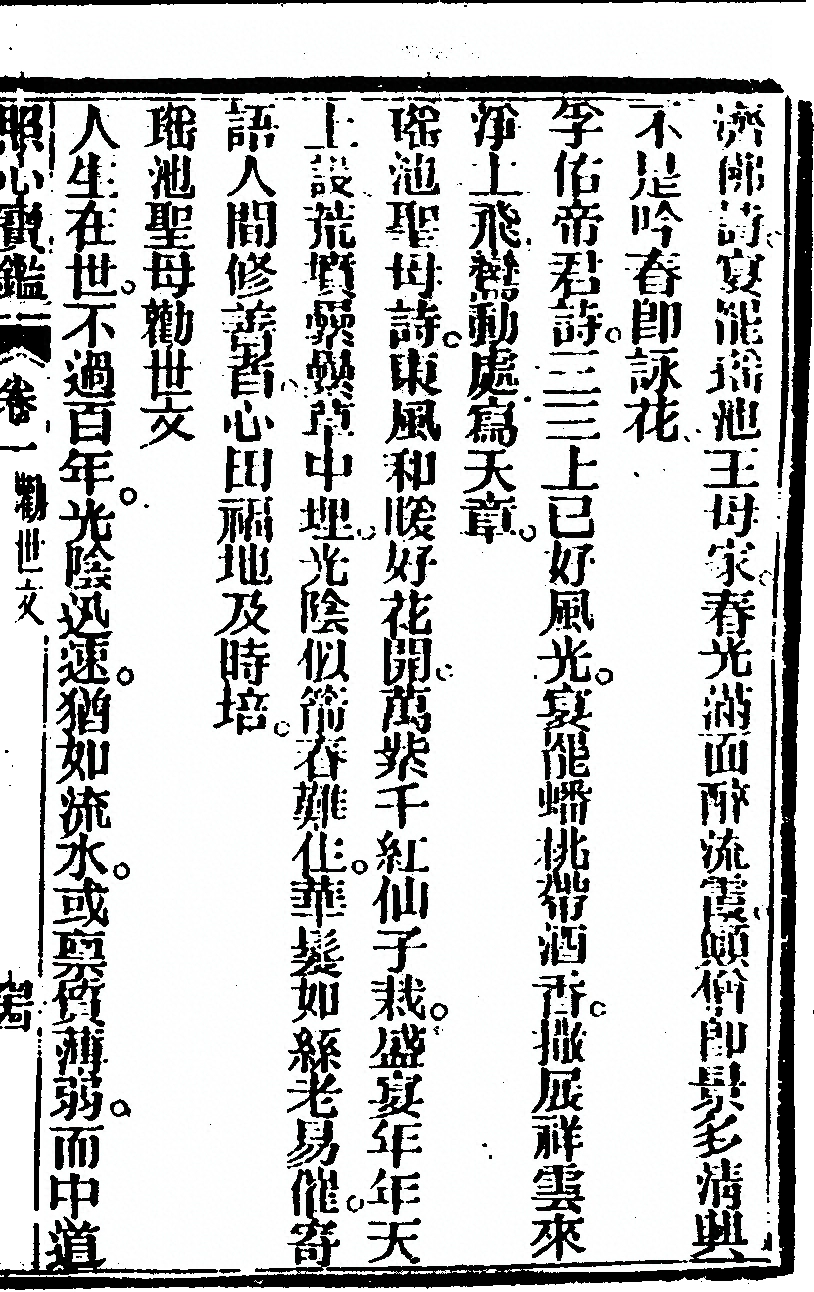 濟佛詩宴罷瑤池王母家。春光滿面醉流霞。顚僧卽景多清興
不是吟春卽詠花。
孚佑帝君詩。三三上巳好風光。宴罷蟠桃帶酒香。撒展祥雲來
淨土飛鸞動處寫天章。
瑤池聖母詩。東風和暖好花開。萬紫千紅仙子栽。盛宴年年天
上設荒墳纍纍草中埋。光陰似箭春難住。華髮如絲老易催。寄
語人間修善者。心田福地及時培。
瑤池聖母勸世文
人生在世。不過百年。光陰迅速。猶如流水。或稟質薄弱。而中道
照心寶鑑 卷一 勸世文